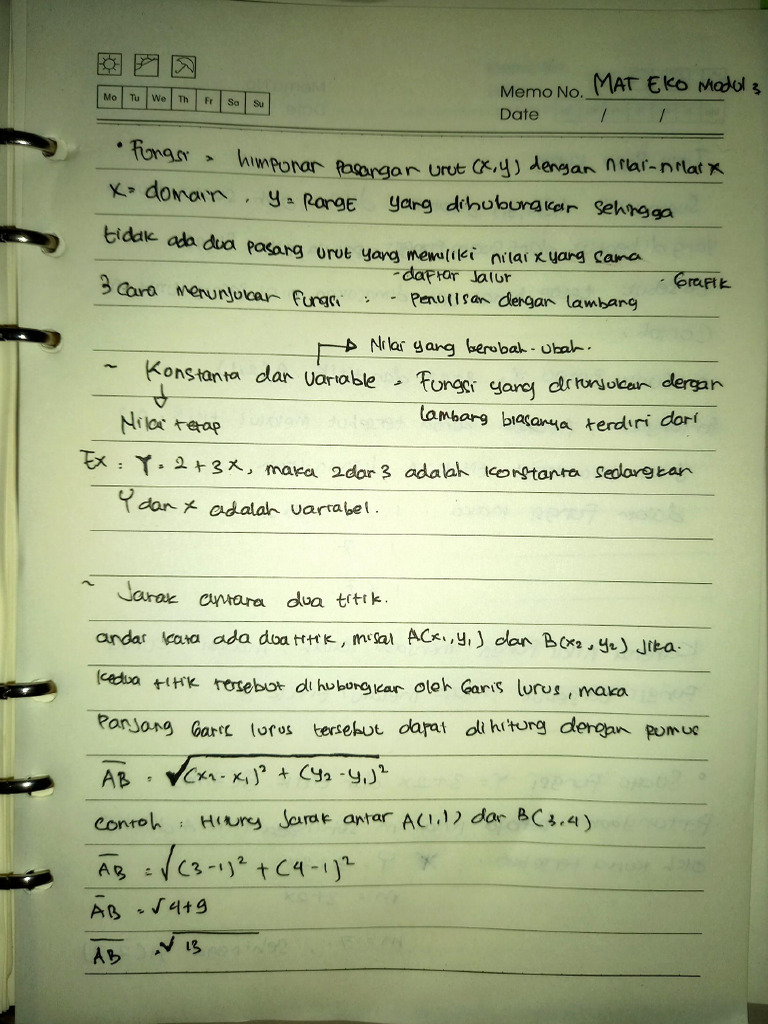 Mo Tu We Th Fr Sa Su
Memo No. MAT EKO Modul 3
Date / /
• Fungsi = himpunan pasangan urut (x,y) dengan nilai-nilai x
x = domain, y = RangE yang dihubungkan sehingga
tidak ada dua pasang urut yang memiliki nilai x yang sama
3 Cara menunjukan Fungsi : - daftar Jalur - Grafik
- Penulisan dengan lambang
Nilai yang berubah-ubah.
~ Konstanta dan variable = Fungsi yang ditunjukan dengan
Nilai tetap lambang biasanya terdiri dari
Ex : Y = 2 + 3x, maka 2 dan 3 adalah konstanta sedangkan
Y dan x adalah variabel.
~ Jarak antara dua titik.
andai kata ada dua titik, misal A(x₁,y₁) dan B(x₂,y₂) Jika.
kedua titik tersebut dihubungkan oleh Garis lurus, maka
Panjang Garis lurus tersebut dapat dihitung dengan rumus
A̅B̅ = √(x₂-x₁)² + (y₂-y₁)²
contoh : Hitung Jarak antar A(1,1) dan B(3,4)
A̅B̅ = √(3-1)² + (4-1)²
A̅B̅ = √4+9
A̅B̅ = √13